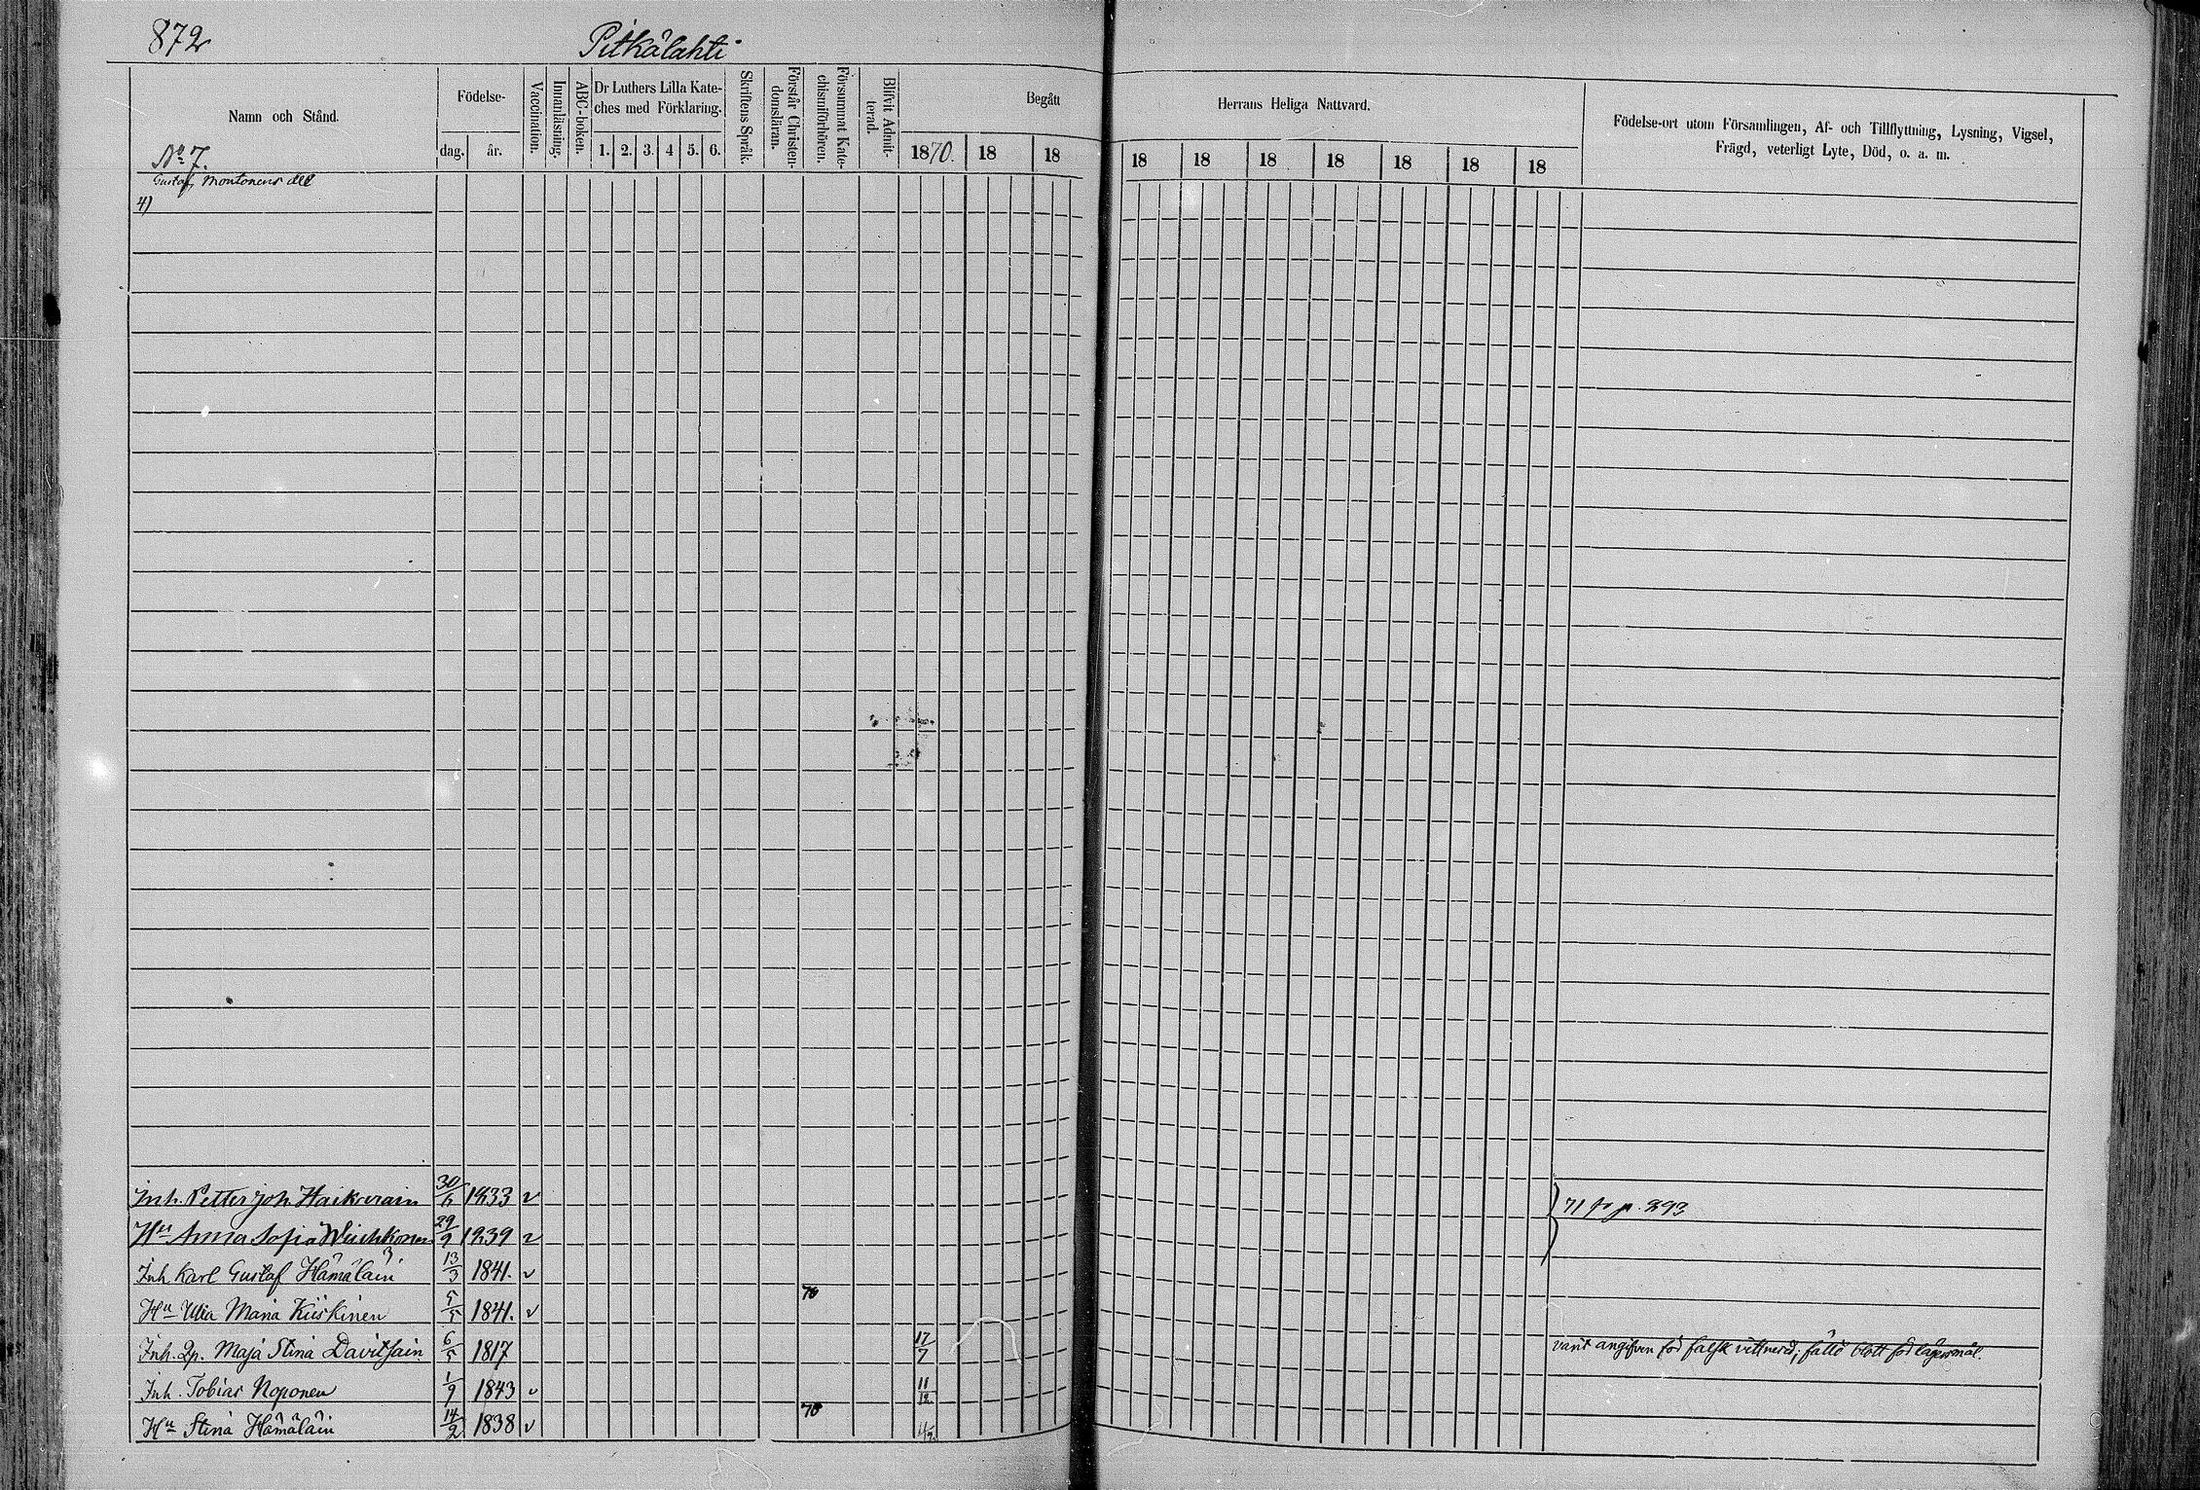 872
Pitkälahti
Namn och Stånd.
Födelse-
dag.
år.
Vaccination.
Innanläsning.
ABC-boken.
Dr Luthers Lilla Kate-
ches med Förklaring.
1. 2. 3. 4 5. 6.
Skriftens Språk.
Förstår Christen-
domsläran.
Försummat Kate-
chismiförhören.
Blifvit Admit-
terad.
Begått
Herrans Heliga Nattvard.
1870. 18 18 18 18 18 18 18 18 18
Födelse-ort utom Församlingen, Af- och Tillflyttning, Lysning, Vigsel,
Frägd, veterligt Lyte, Död, o. a. m.
No 7.
Gustaf Montonens del
4)
Inh. Petter Joh. Haikarain 30/6 1833 v
71 fr p. 293
Hu Anna Sofia 29/9 1839 v
Inh Karl Gustaf Hämäläin 13/3 1841. v
70
Hu Ulla Maria Kiiskinen 5/5 1841. v
Inh. Maja Stina Davitsain 6/5 1817 17/7 varit angifven för falsk vittnesed; blott för lägersmål.
Inh. Tobias Noponen 1/9 1843 v 11/12
70
Hu Stina Hämäläin 14/2 1838 v